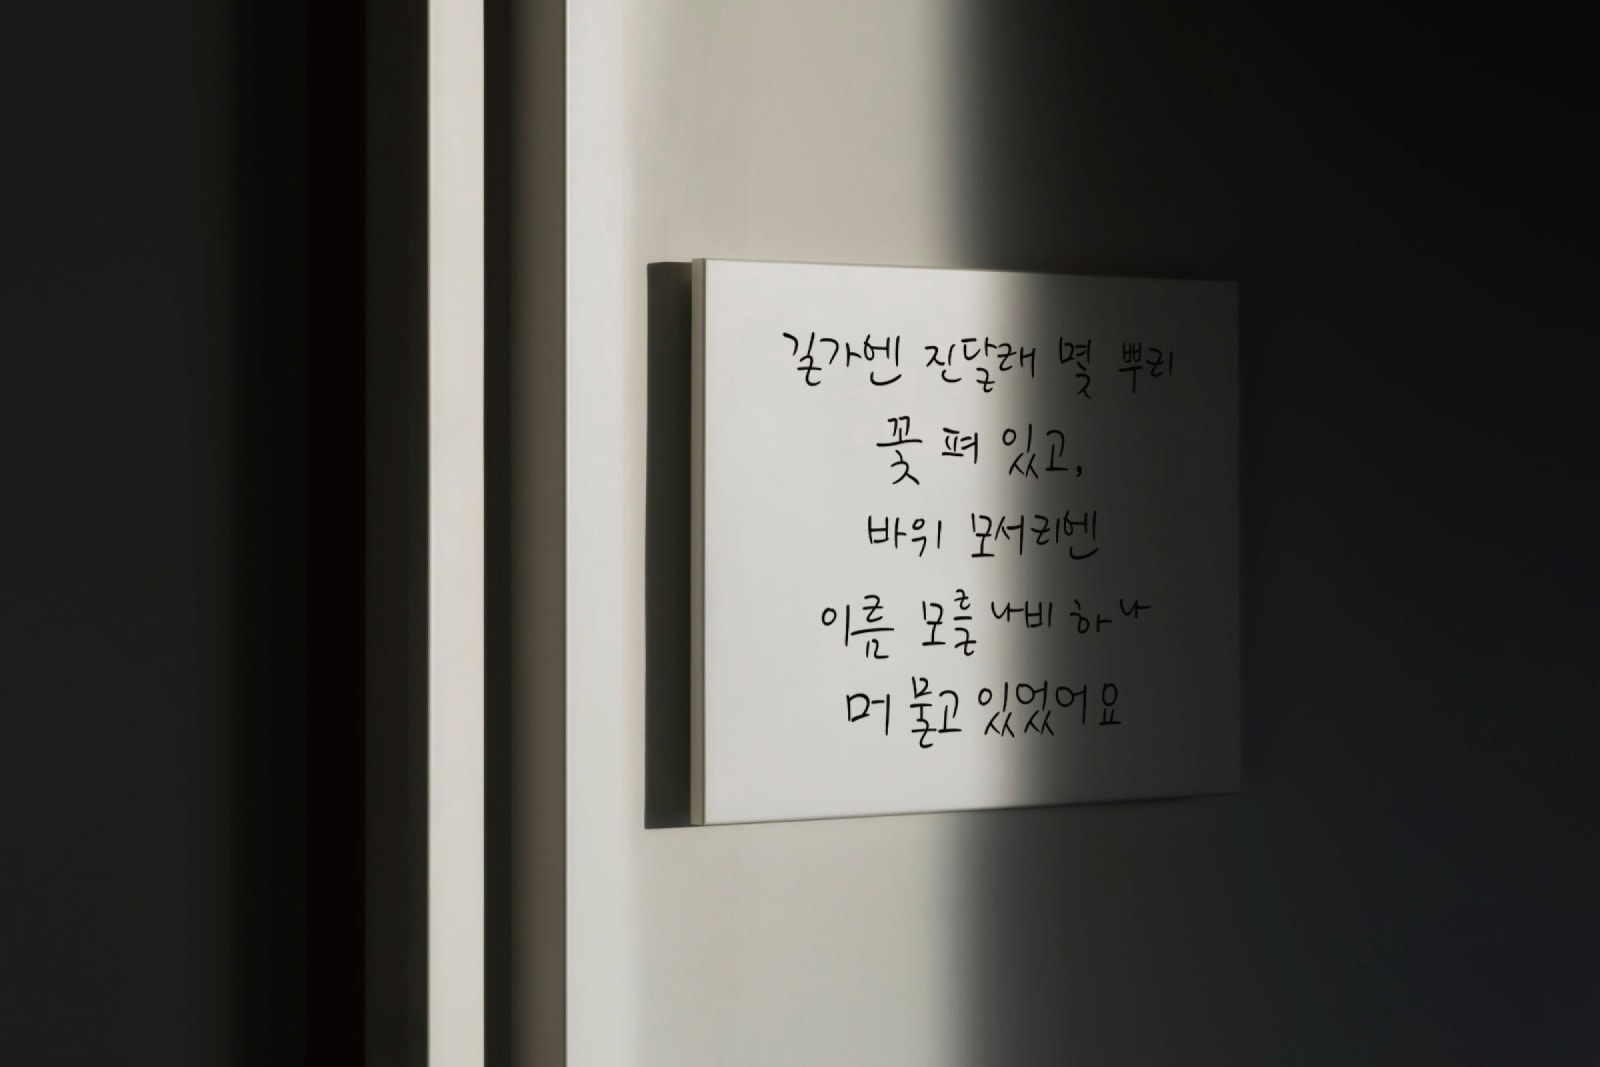 길가엔 진달래 몇 뿌리
꽃 펴 있고,
바위 모서리엔
이름 모를 나비 하나
머물고 있었어요